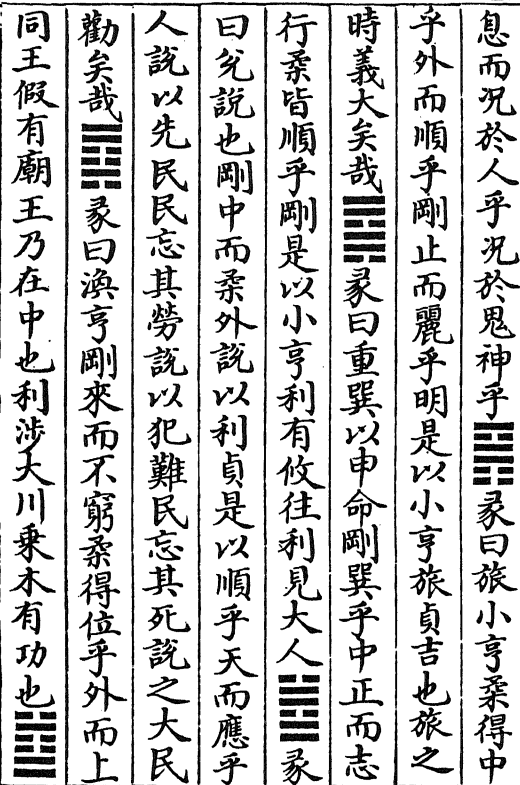 息而况於人乎况於鬼神乎䷷彖曰旅小亨柔得中
乎外而順乎剛止而麗乎明是以小亨旅貞吉也旅之
時義大矣哉䷸彖曰重巽以申命剛巽乎中正而志
行柔皆順乎剛是以小亨利有攸往利見大人䷹彖
曰兊說也剛中而柔外說以利貞是以順乎天而應乎
人說以先民民忘其勞說以犯難民忘其死說之大民
勸矣哉䷺彖曰渙亨剛來而不窮柔得位乎外而上
同王假有廟王乃在中也利涉大川乗木有功也䷻